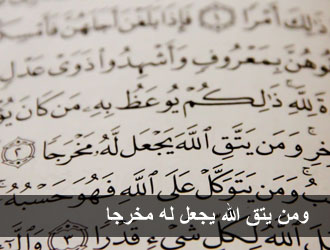 ذَٰلِكَ أَمْرًا ۝١ فَإِذَا بَلَغْنَ أَجَلَهُنَّ فَأَمْسِكُ
وهُنَّ بِمَعْرُوفٍ وَأَشْهِدُوا۟ ذَوَىْ عَدْلٍ
ةَ لِلَّهِ ۚ ذَٰلِكُمْ يُوعَظُ بِهِۦ مَن كَانَ يُؤْ
خِرِ ۚ وَمَن يَتَّقِ ٱللَّهَ يَجْعَل لَّهُۥ مَخْرَجًا ۝٢
بُ ۚ وَمَن يَتَوَكَّلْ عَلَى ٱللَّهِ فَهُوَ حَسْبُهُۥٓ ۚ
لَ ٱللَّهُ لِكُلِّ شَىْءٍ قَدْرًا ۝٣ وَٱلَّٰٓـِٔى
ومن يتق الله يجعل له مخرجا